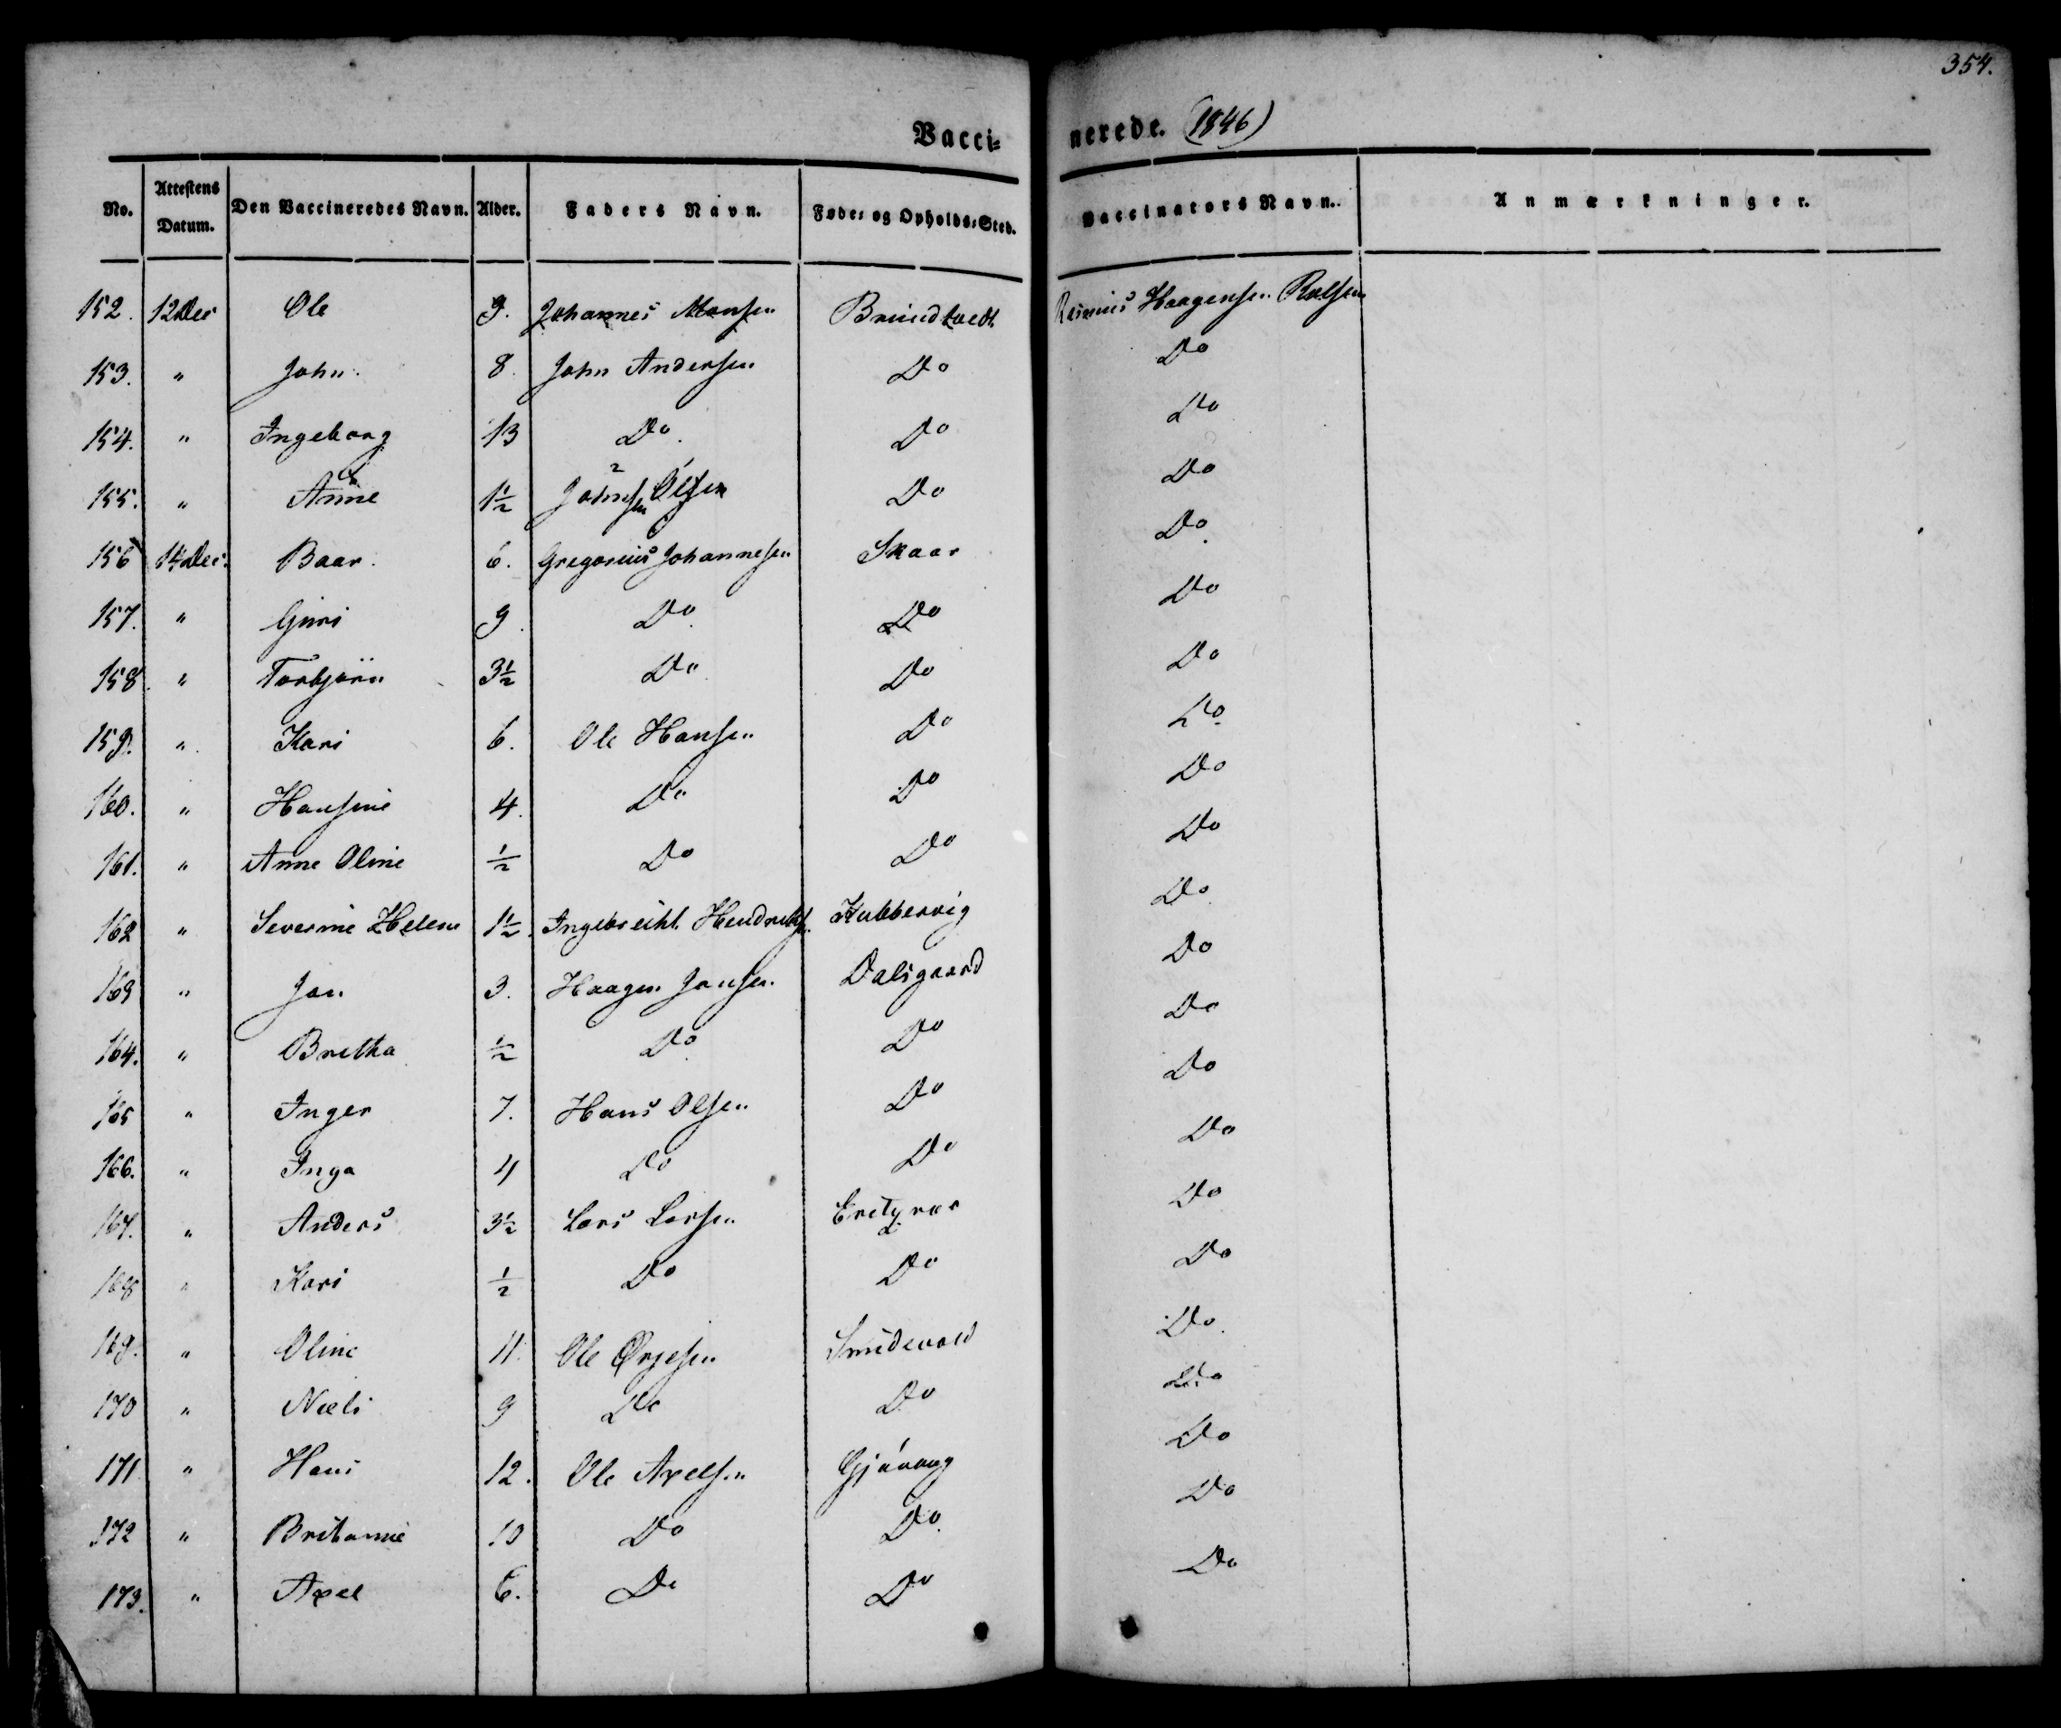 354.
Vaccinerede. (1846)
No. Attestens Datum. Den Vaccineredes Navn. Alder. Faders Navn. Føde- og Opholds-Sted. Vaccinators Navn. Anmærkninger.
152. 12 Dec Ole 9. Johannes Monsen Haagensen
153. " John 8. John Andersen Do Do
154. " Ingeborg 13 Do Do Do
155. " Anne 1½ Olsen Do Do
156 14 Dec. Baar 6. Gregorius Johannesen Skaar Do
157. " Guri 9. Do Do Do
158. " Torbjörn 3½ Do Do Do
159. " Kari 6. Ole Hansen Do Do
160. " Hansine 4. Do Do Do
161. " Anne Oline ½ Do Do Do
162 " Severine Helene 1½ Ingebreicht Hendriks. Kubbervig Do
163 " Jon 3. Haagen Jonsen Dalsgaard Do
164. " Bretha ½ Do Do Do
165 " Inger 7. Hans Olsen Do Do
166. " Inga 4 Do Do Do
167. " Anders 3½ Lars Larsen Do
168 " Kari ½ Do Do Do
169. " Oline 11. Ole Ørjesen Smidevold Do
170 " Niels 9 Do Do Do
171 " Hans 12. Ole Axelsen Do
172 " Britanne 10 Do Do Do
173. " Axel 6. Do Do Do